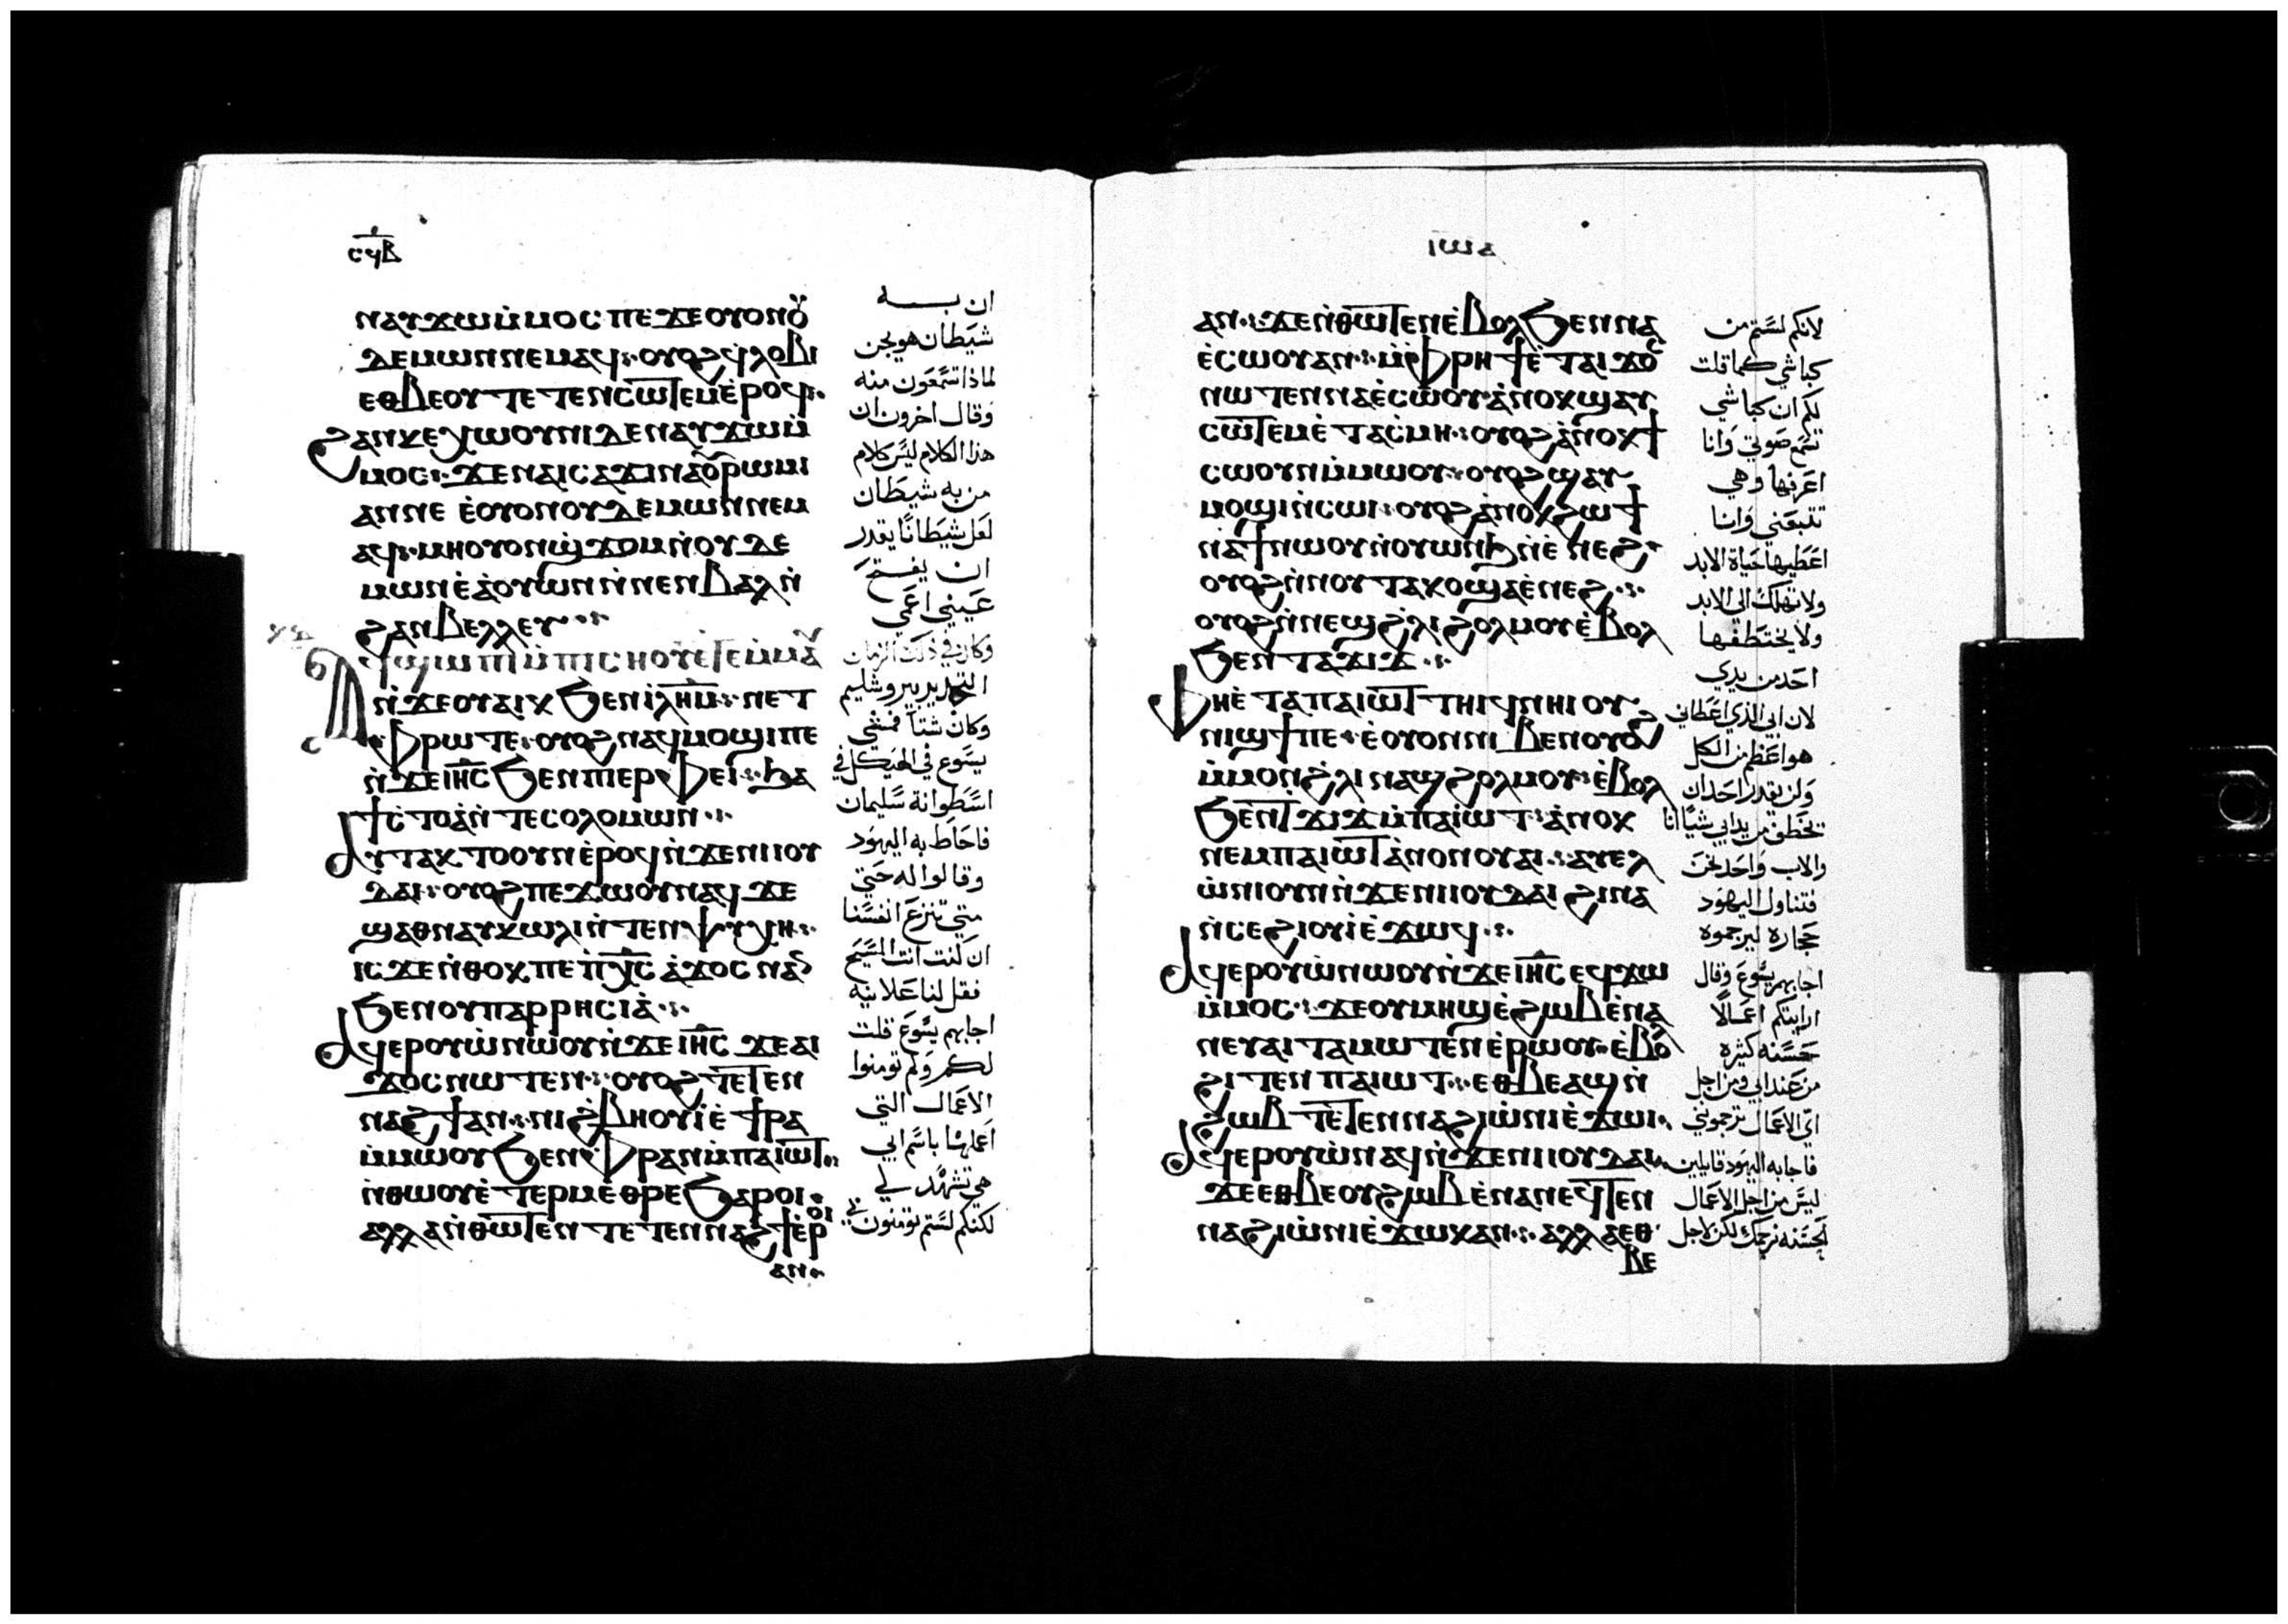 ⲥϥⲃ
ⲛⲁⲩϫⲱⲙ̇ⲙⲟⲥ ⲡⲉ ϫⲉ ⲟⲩⲟⲛⲟⲩ
ⲇⲉⲙⲱⲛ ⲛⲉⲙⲁϥ ⲟⲩⲟϩ ϥⲗⲟⲃⲓ
ⲉⲑⲃⲉⲟⲩ ⲧⲉⲧⲉⲛⲥⲱⲧⲉⲙ ⲉ̇ⲣⲟϥ
ϩⲁⲛⲕⲉⲭⲱⲟⲩⲛⲓ ⲇⲉ ⲛⲁⲩϫⲱⲙ̇
ⲙⲟⲥ ϫⲉ ⲛⲁⲓⲥⲁϫⲓ ⲛⲁⲟⲩⲣⲱⲙⲓ
ⲁⲛ ⲛⲉ ⲉ̇ⲟⲩⲟⲛⲟⲩⲇⲉⲙⲱⲛ ⲛⲉⲙ
ⲁϥ ⲙⲏ ⲟⲩⲟⲛϣϫⲟⲙ ⲛ̇ⲟⲩⲇⲉ
ⲙⲱⲛ ⲉ̇ⲁ̇ⲟⲩⲱⲛ ⲛ̇ⲛⲉⲛⲃⲁⲗ ⲛ̇
ϩⲁⲛⲃⲉⲗⲗⲉⲩ
ⲁϥϣⲱⲡⲓ ⲙ̇ⲡⲓⲥⲏⲟⲩ ⲉ̇ⲧⲉⲙⲙⲁⲩ
ⲛ̇ϫⲉ ⲟⲩⲁⲓⲕ ϧⲉⲛ ⲓ̅ⲗ̅ⲏ̅ⲙ̅ ⲛⲉ ⲧ
ⲫⲣⲱ ⲧⲉ ⲟⲩⲟϩ ⲛⲁϥⲙⲟϣⲓ ⲡⲉ
ⲛ̇ϫⲉ ⲓⲏⲥ ϧⲉⲛ ⲡⲓⲉⲣⲫⲉⲓ ϧⲁ
ϯⲥ̇ⲧⲟⲁ̇ ⲛ̇ⲧⲉ ⲥⲟⲗⲟⲙⲱⲛ
ⲁⲩⲧⲁⲕⲧⲟⲟⲩⲛ ⲉ̇ⲣⲟϥ ⲛ̇ϫⲉ ⲛⲓⲓⲟⲩ
ⲇⲁⲓ ⲟⲩⲟϩ ⲡⲉϫⲱⲟⲩ ⲛⲁϥ ϫⲉ
ϣⲁⲑⲛⲁⲩ ⲕⲱⲗⲓ ⲛ̇ⲧⲉⲛⲯⲩⲭⲏ
ⲓⲥϫⲉ ⲛ̇ⲑⲟⲕ ⲡⲉ ⲡⲭⲥ ⲁ̇ϫⲟⲥ ⲛⲁⲛ
ϧⲉⲛ ⲟⲩⲡⲁⲣⲣⲏⲥⲓⲁ̇
ⲁϥⲉⲣⲟⲩⲱ̇ ⲛⲱⲟⲩ ⲛ̇ϫⲉ ⲓⲏⲥ ϫⲉ ⲁⲓ
ϫⲟⲥ ⲛⲱⲧⲉⲛ ⲟⲩⲟϩ ⲧⲉⲧⲉⲛ
ⲛⲁϩϯ ⲁⲛ ⲛⲓϩ̇ⲃⲏⲟⲩⲓ̇ ⲉ̇ϯⲣⲁ
ⲙ̇ⲙⲱⲟⲩ ϧⲉⲛ ⲫⲣⲁⲛ ⲙ̇ⲡⲁⲓⲱⲧ
ⲛ̇ⲑⲱⲟⲩ ⲉ̇ⲧⲉⲣⲙⲉ̇ⲑⲣⲉ ϧⲁⲣⲟⲓ
ⲁⲗⲗⲁ ⲛ̇ⲑⲱⲧⲉⲛ ⲧⲉⲧⲉⲛⲛⲁϩϯ ⲉ̇ⲣⲟⲓ
ⲁⲛ
ان بـه
شيطان هو يجن
لماذا تسمعون منه
وقال اخرون ان
هذا الكلام ليس كلام
من به شيطان
لعل شيطانا يقدر
ان يفتح
عيني اعمى
وكان في ذلك الزمان
التجديد بيروشليم
وكان شتا فمشي
يسوع في الهيكل في
اسطوانة سليمان
فاحاط به اليهود
وقالوا له حتي
متي تنزع انفسنا
ان كنت انت المسيح
فقل لنا علانيه
اجابهم يسوع قلت
لكم ولم تومنوا
الاعمال التي
اعملها باسم ابي
هي تشهد لي
لكنكم لستم تومنون بي
ⲓⲱⲁ
ⲁⲛ ϫⲉ ⲛ̇ⲑⲱⲧⲉⲛ ⲉ̇ⲃⲟⲗ ϧⲉⲛ ⲛⲁ
ⲉ̇ⲥⲱⲟⲩ ⲁⲛ ⲙ̇ⲫⲣⲏϯ ⲉ̇ⲧⲁⲓϫⲟⲥ
ⲛⲱⲧⲉⲛ ⲛⲁⲉ̇ⲥⲱⲟⲩ ⲁ̇ⲛⲟⲕ ϣⲁⲩ
ⲥⲱⲧⲉⲙ ⲉ̇ⲧⲁⲥ̇ⲙⲏ ⲟⲩⲟϩ ⲁ̇ⲛⲟⲕ ϯ
ⲥⲱⲟⲩⲛ ⲙ̇ⲙⲱⲟⲩ ⲟⲩⲟϩ ϣⲁⲩ
ⲙⲟϣⲓ ⲛ̇ⲥⲱⲓ ⲟⲩⲟϩ ⲁ̇ⲛⲟⲕ ϩⲱ ϯ
ⲛⲁϯ ⲛⲱⲟⲩ ⲛ̇ⲟⲩⲱⲛϧ ⲛ̇ⲉ̇ⲛⲉϩ
ⲟⲩⲟϩ ⲛ̇ⲛⲟⲩⲧⲁⲕⲟ ϣⲁⲉ̇ⲛⲉϩ
ⲟⲩⲟϩ ⲛ̇ⲛⲉϣϩ̇ⲗⲓ ϩⲟⲗⲙⲟⲩ ⲉ̇ⲃⲟⲗ
ϧⲉⲛ ⲧⲁϫⲓϫ
ⲫⲏ ⲉ̇ⲧⲁ ⲡⲁⲓⲱⲧ ⲧⲏⲓϥ ⲛⲏⲓ ⲟⲩ
ⲛⲓϣϯ ⲡⲉ ⲉ̇ⲟⲩⲟⲛ ⲛⲓⲃⲉⲛ ⲟⲩⲟϩ
ⲙ̇ⲙⲟⲛ ϩ̇ⲗⲓ ⲛⲁϣϩⲟⲗⲙⲟⲩ ⲉ̇ⲃⲟⲗ
ϧⲉⲛ ⲧϫⲓϫ ⲙ̇ⲡⲁⲓⲱⲧ ⲁ̇ⲛⲟⲕ
ⲛⲉⲙ ⲡⲁⲓⲱⲧ ⲁ̇ⲛⲟⲛ ⲟⲩⲁⲓ ⲁⲩⲉⲗ
ⲱ̇ⲛⲓ ⲟⲩⲛ ⲛ̇ϫⲉ ⲛⲓⲓⲟⲩⲇⲁⲓ ϩⲓⲛⲁ
ⲛ̇ⲥⲉϩⲓⲟⲩⲓ̇ ⲉ̇ϫⲱϥ
ⲁϥⲉⲣⲟⲩⲱ̇ ⲛⲱⲟⲩ ⲛ̇ϫⲉ ⲓⲏⲥ ⲉϥϫⲱ
ⲙ̇ⲙⲟⲥ ϫⲉ ⲟⲩⲙⲏϣ ⲉ̇ϩⲱⲃ ⲉ̇ⲛⲁ
ⲛⲉⲩ ⲁⲓⲧⲁⲙⲱⲧⲉⲛ ⲉ̇ⲣⲱⲟⲩ ⲉ̇ⲃⲟⲗ
ϩⲓⲧⲉⲛ ⲡⲁⲓⲱⲧ ⲉⲑⲃⲉ ⲁϣ ⲛ̇
ϩⲱⲃ ⲧⲉⲧⲉⲛⲛⲁϩⲓⲱ̇ⲛⲓ ⲉ̇ϫⲱⲓ
ⲁϥⲉⲣⲟⲩⲱ̇ ⲛⲁϥ ⲛ̇ϫⲉ ⲛⲓⲓⲟⲩⲇⲁⲓ
ϫⲉ ⲉⲑⲃⲉ ⲟⲩϩⲱⲃ ⲉ̇ⲛⲁⲛⲉϥ ⲧⲉⲛ
ⲛⲁϩⲓⲱ̇ⲛⲓ ⲉ̇ϫⲱⲕ ⲁⲛ ⲁⲗⲗⲁ ⲉⲑ
ⲃⲉ
لانكم لستم من
كباشي كما قلت
لكم ان كباشي
تسمع صوتي وانا
اعرفها وهي
تتبعني وانا
اعطيها حياة الابد
ولا تهلك الي الابد
ولا يختطفها
احد من يدي
لان ابي الذي اعطاني
هو اعظم من الكل
ولن يقدر احد ان
يخطف من يد ابي شيا انا
والاب واحد نحن
فتناول اليهود
حجاره ليرجموه
اجابهم يسوع وقال
اريتكم اعمالا
حسنه كثيره
من عند ابي ومن اجل
اي الاعمال ترجموني
فاجابه اليهود قايلين
ليس من اجل الاعمال
الحسنه نرجمك لكن لاجل